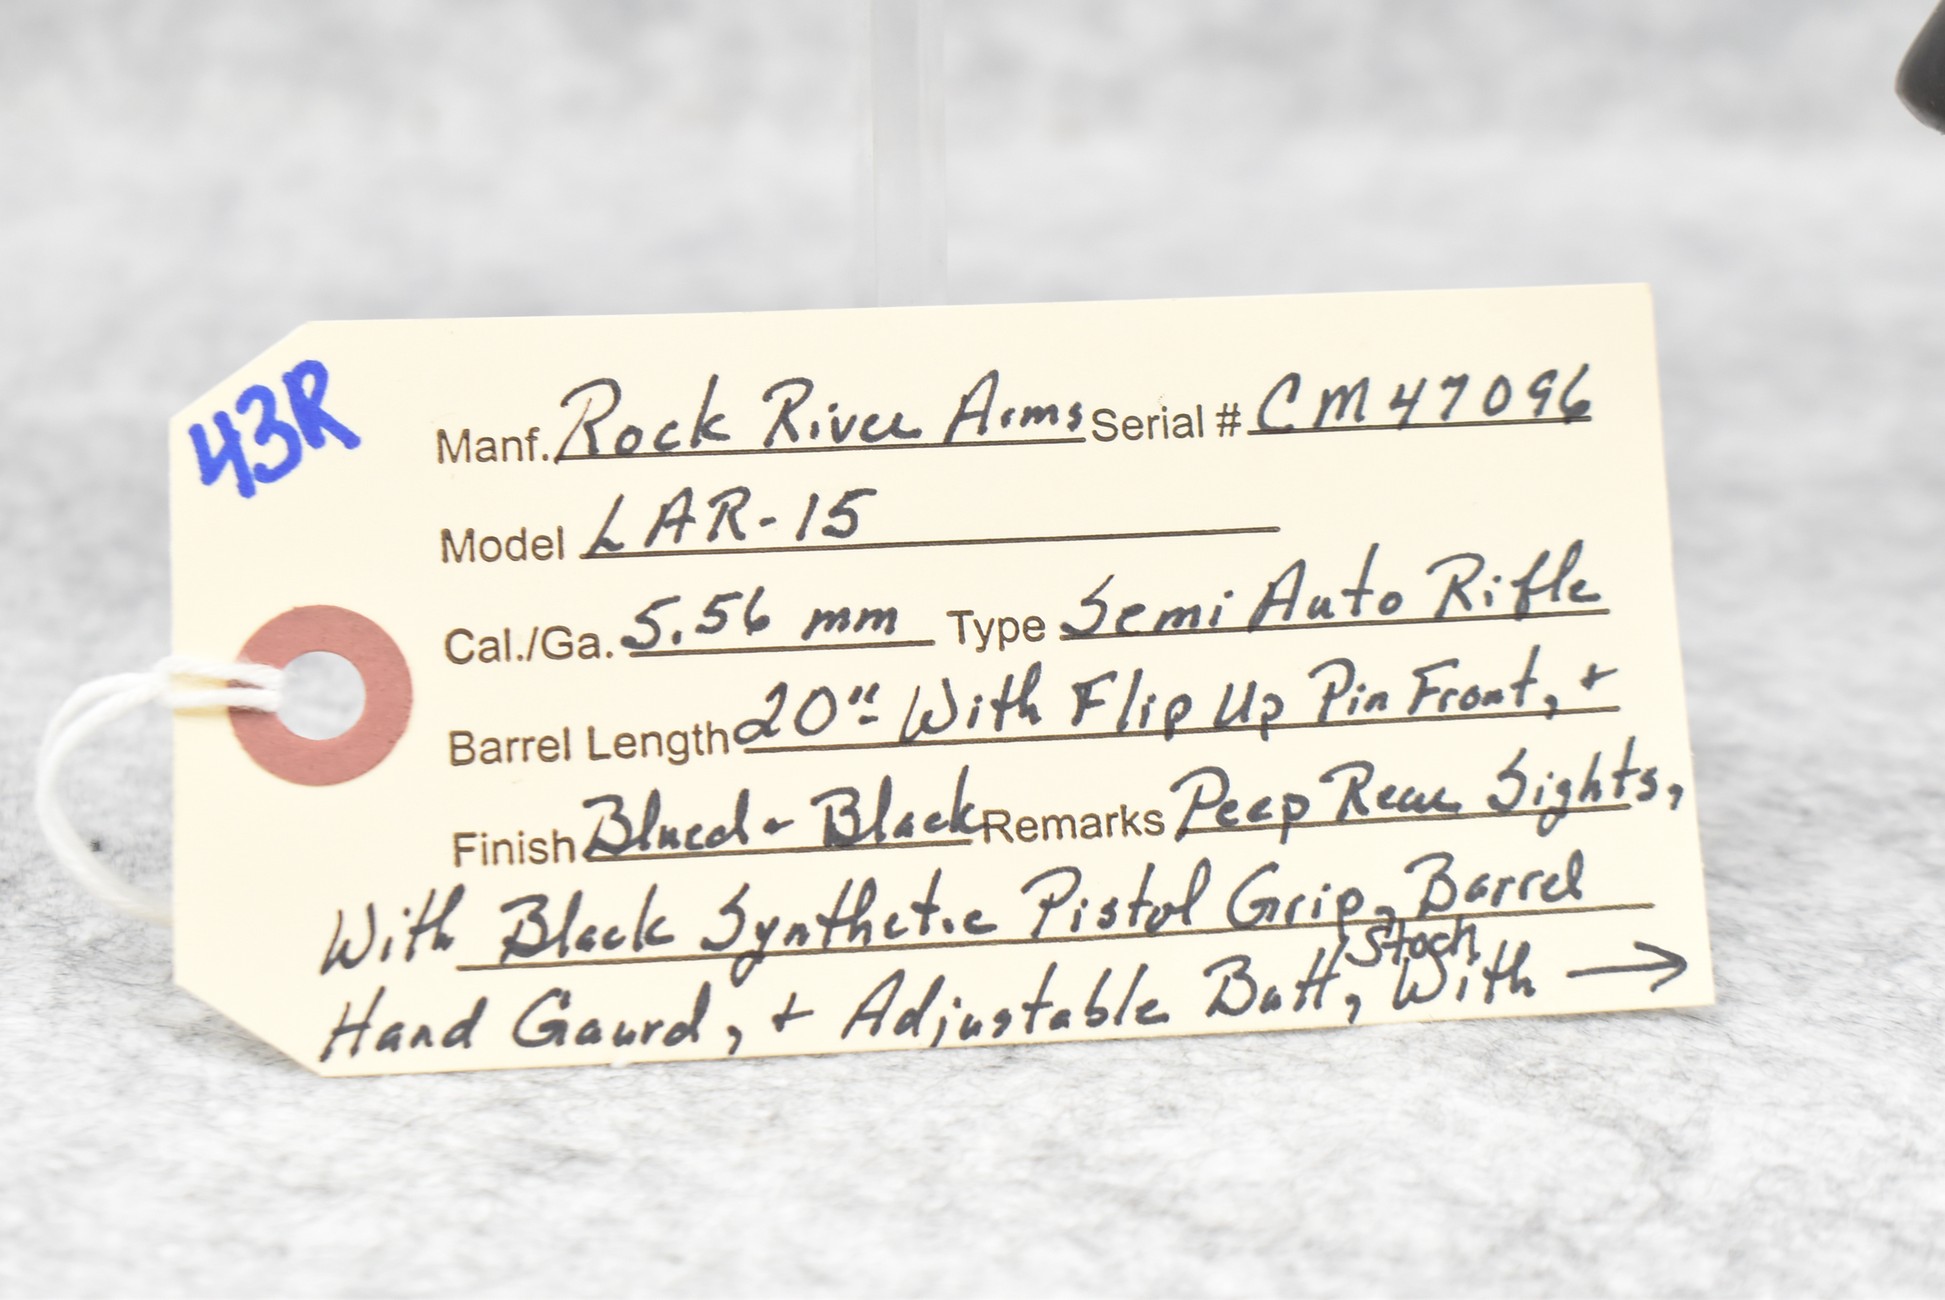 43R
Manf. Rock River Arms Serial # CM47096
Model LAR-15
Cal./Ga. 5.56 mm Type Semi Auto Rifle
Barrel Length 20" With Flip Up Pin Front, +
Finish Blued - Black Remarks Peep Rear Sights,
With Black Synthetic Pistol Grip, Barrel
Hand Gaurd, + Adjustable Butt, Stock With →